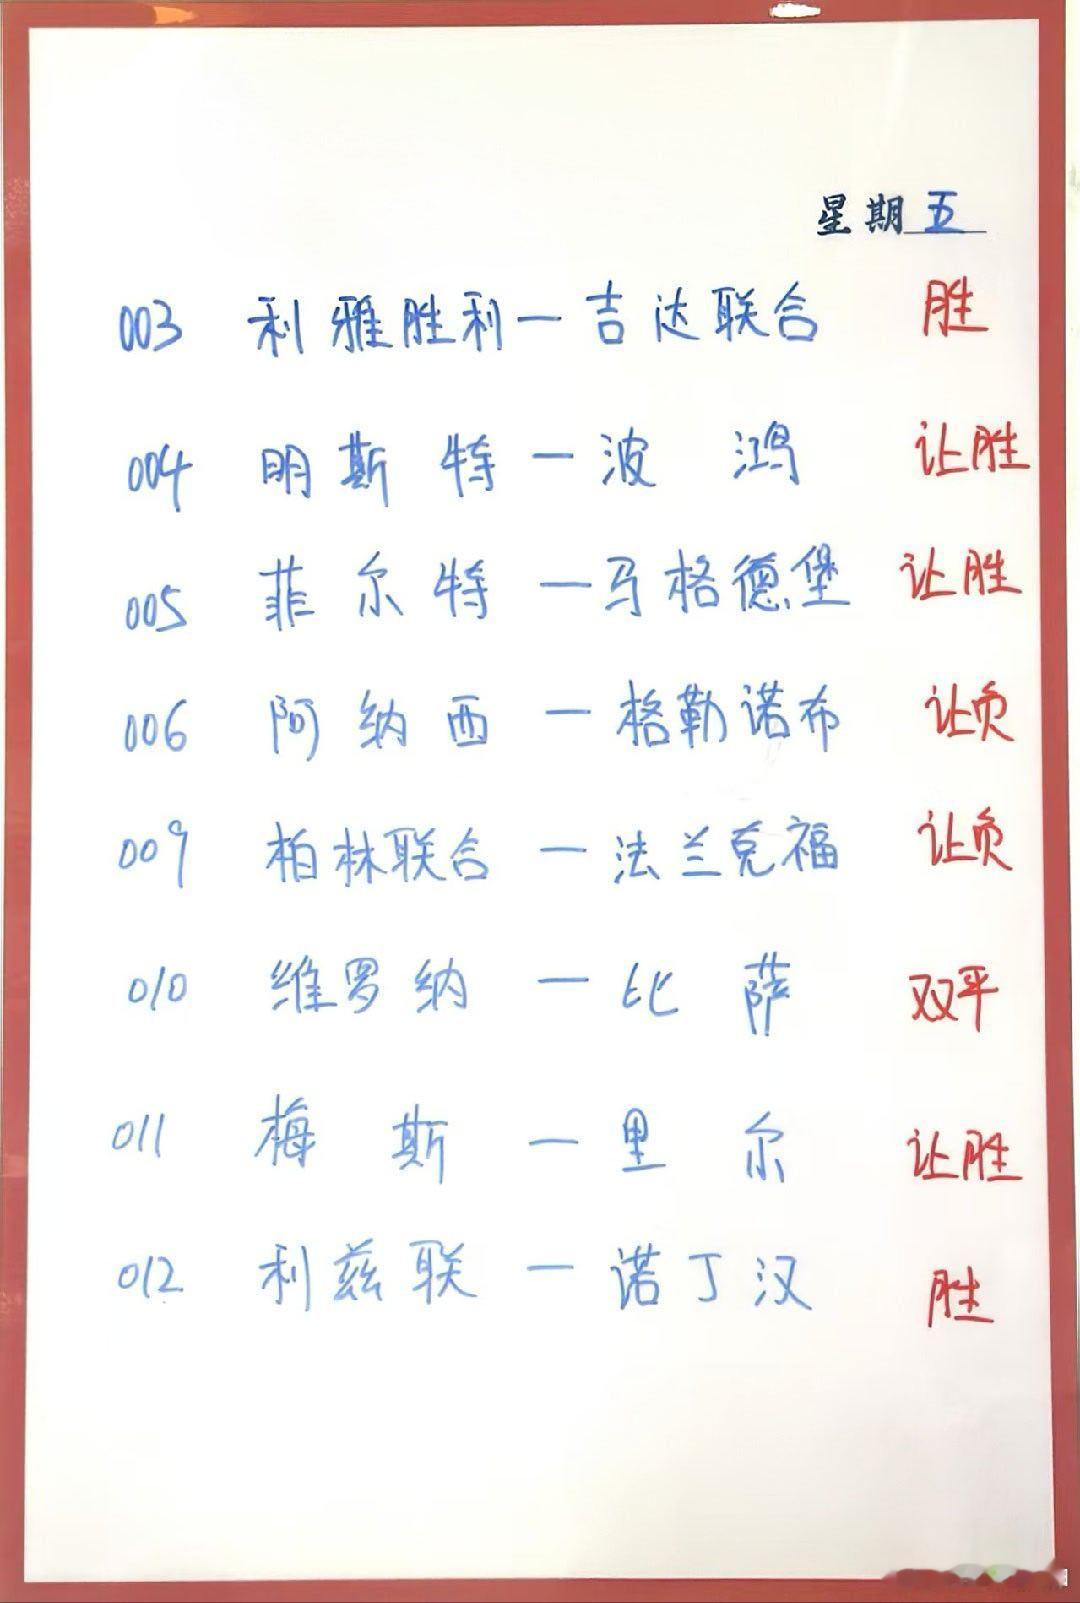 星期五
003 利雅胜利—吉达联合 胜
004 明斯特—波鸿 让胜
005 菲尔特—马格德堡 让胜
006 阿纳西—格勒诺布 让负
009 柏林联合—法兰克福 让负
010 维罗纳—比萨 双平
011 梅斯—里尔 让胜
012 利兹联—诺丁汉 胜